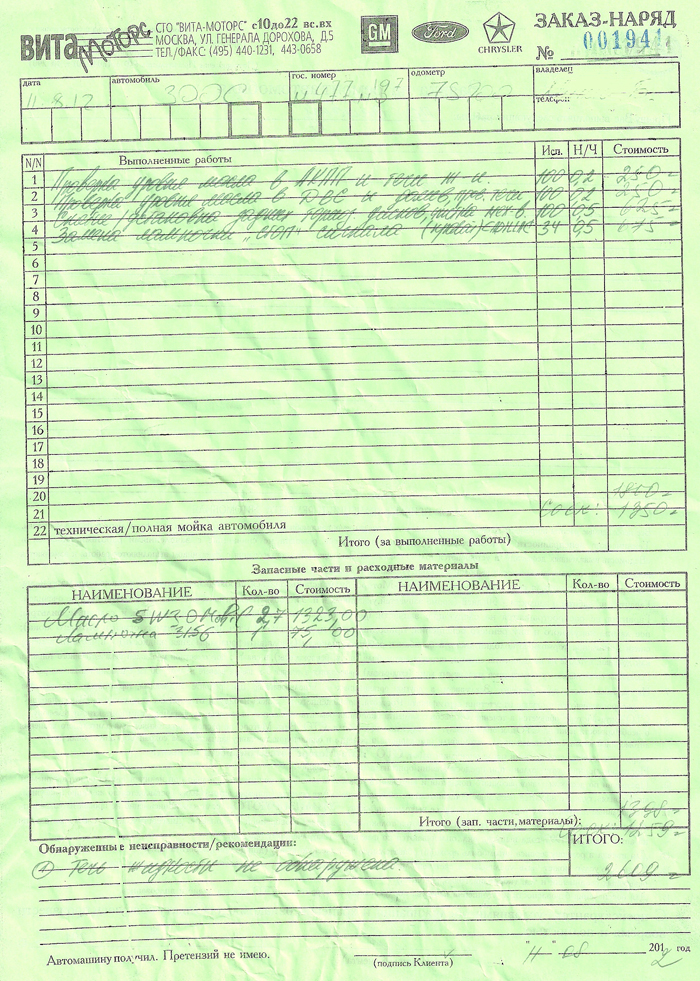 ВИТА МОТОРС
СТО "ВИТА-МОТОРС" с 10 до 22 вс.вх
МОСКВА, УЛ. ГЕНЕРАЛА ДОРОХОВА, Д.5
ТЕЛ./ФАКС: (495) 440-1231, 443-0658
GM Ford CHRYSLER
ЗАКАЗ-НАРЯД
№ 001941
дата автомобиль гос. номер одометр владелец
11 8 12 300C
телефон:
N/N Выполненные работы Исп. Н/Ч Стоимость
1 Проверка уровня масла в АКПП и течи 100 02 250=
2 Проверка уровня масла в ДВС и 100 02 250=
3 Снятие/установка задних торм. дисков, 100 05 625=
4 Замена лампочки "СТОП" сигнала (правой) 34 05 675=
5
6
7
8
9
10
11
12
13
14
15
16
17
18
19
20 1800=
21 Со ск: 1350=
22 техническая/полная мойка автомобиля
Итого (за выполненные работы)
Запасные части и расходные материалы
НАИМЕНОВАНИЕ Кол-во Стоимость НАИМЕНОВАНИЕ Кол-во Стоимость
Масло 5W30 2,7 1323,00
Лампочка 3156 1 75,00
1398=
Итого (зап. части,материалы): 1259=
Обнаруженные неисправности/рекомендации:
ИТОГО:
2609=
① Течь жидкости не обнаружена
Автомашину получил. Претензий не имею.
(подпись Клиента)
"11" 08 2012 год